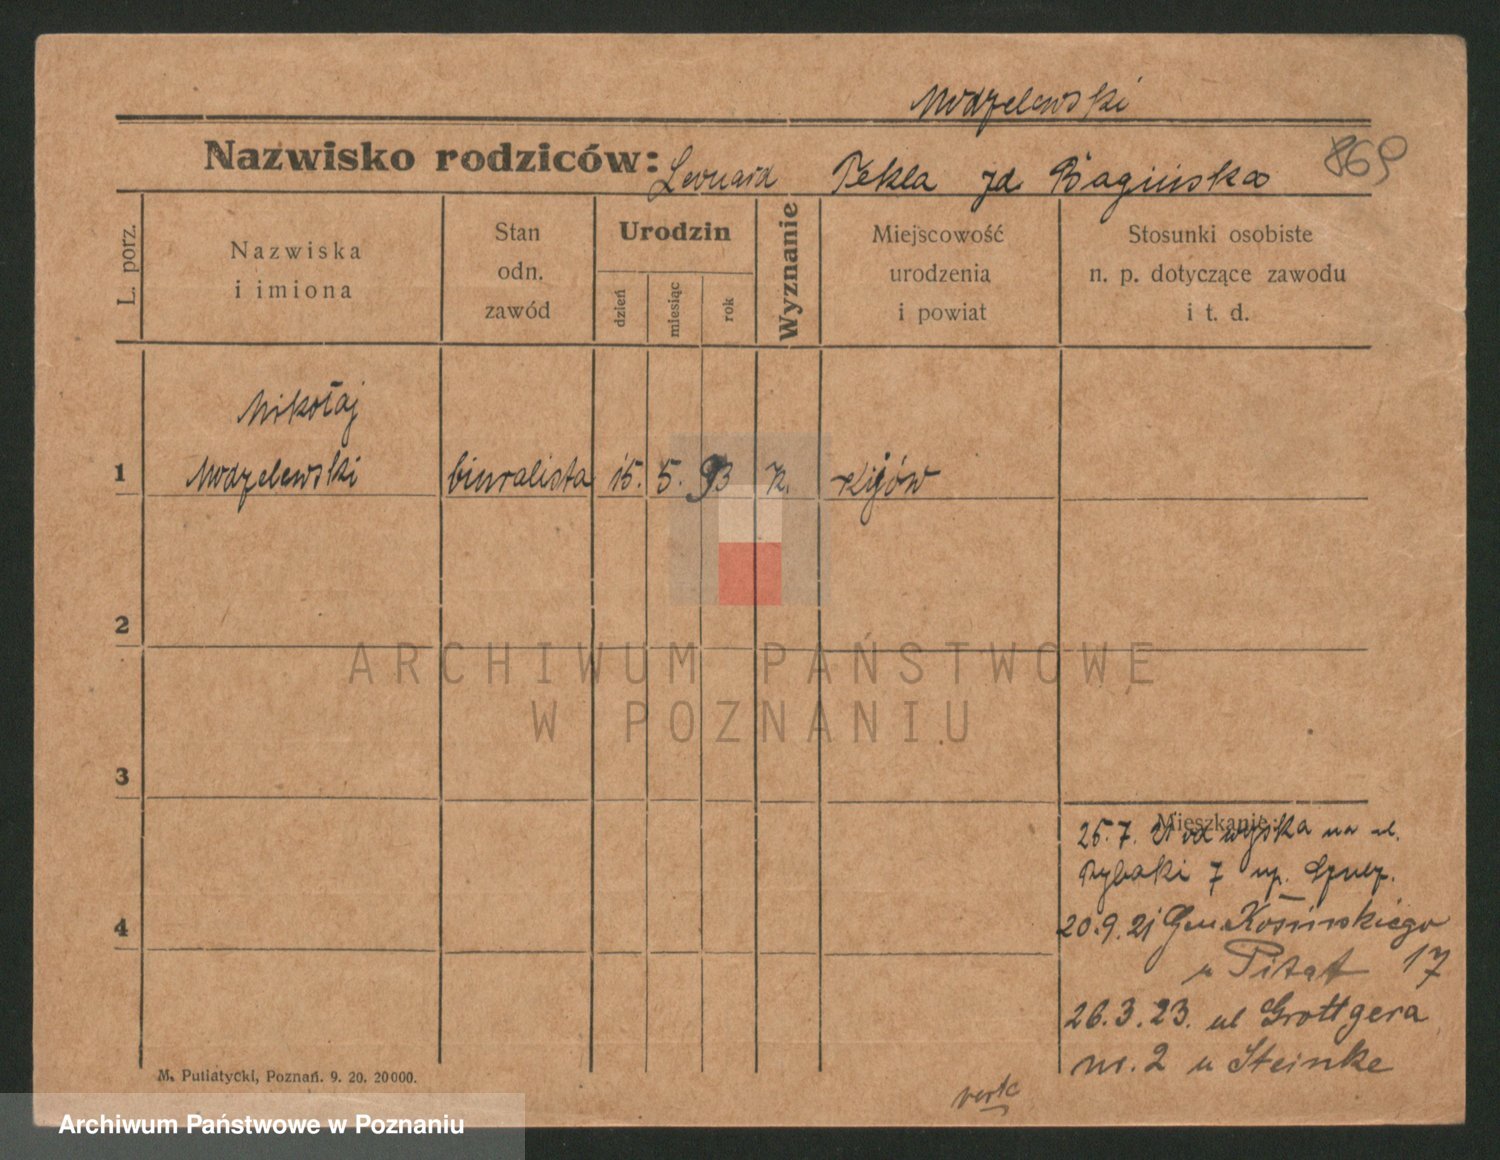 Modzelewski
Nazwisko rodziców: Leonard Tekla zd. Bagińska
869
L. porz.
Nazwiska
i imiona
Stan
odn.
zawód
Urodzin
dzień
miesiąc
rok
Wyznanie
Miejscowość
urodzenia
i powiat
Stosunki osobiste
n. p. dotyczące zawodu
i t. d.
Mikołaj
1 Modzelewski biuralista 15. 5. 93 k. Kijów
2
ARCHIWUM PAŃSTWOWE
W POZNANIU
3
Mieszkanie:
25. 7. 21 od wojska na ul.
Rybaki 7 up.
4
20. 9. 21 Gen. Kosińskiego
u 17
26. 3. 23. ul Grottgera
nr. 2 u Steinke
M. Putiatycki, Poznań. 9. 20. 20000.
verte
Archiwum Państwowe w Poznaniu